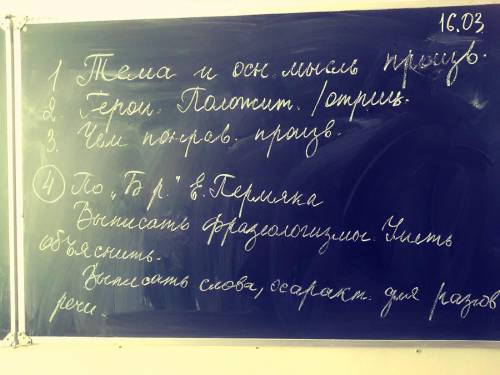 16.03
1 Тема и осн. мысль произв.
2. Герои. Положит./отриц.
3. Чем понрав. произв.
4 По „Б р." Е. Пермяка
Выписать фразеологизмы. Уметь
объяснить.
Выписать слова, характ. для разгов
речи.